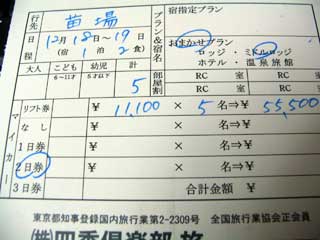 行先 苗場
プラン&宿名 宿指定プラン
日程 12月18日〜19日
(宿1泊2食)
おまかせプラン
ロッジ・ミドルロッジ
ホテル・温泉旅館
大人 こども 6〜11才 幼児 5才以下 計
5
部屋割 RC 室 RC 室
RC 室 RC 室
マイカー
リフト券 ¥ 11,100 × 5名⇒¥ 55,500
なし ¥ × 名⇒¥
1日券 ¥ × 名⇒¥
2日券 ¥ × 名⇒¥
3日券 合計金額 ¥
東京都知事登録国内旅行業第2-2309号 全国旅行業協会正会員
㈱四季倶楽部